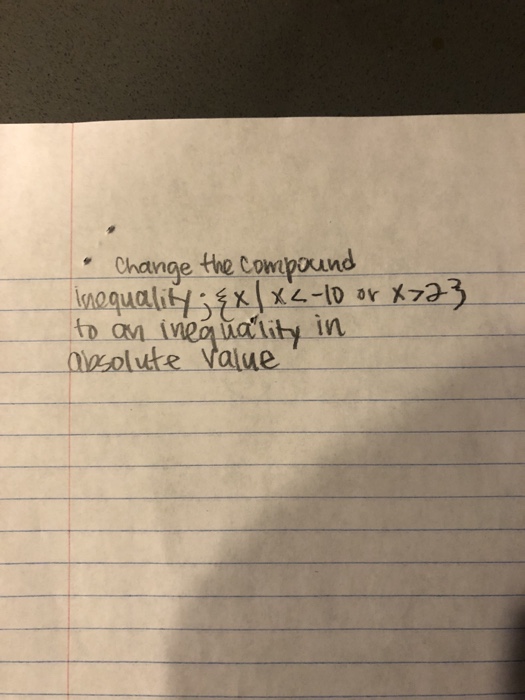 • Change the compound
inequality; {x | x < -10 or x > 2}
to an inequality in
absolute value